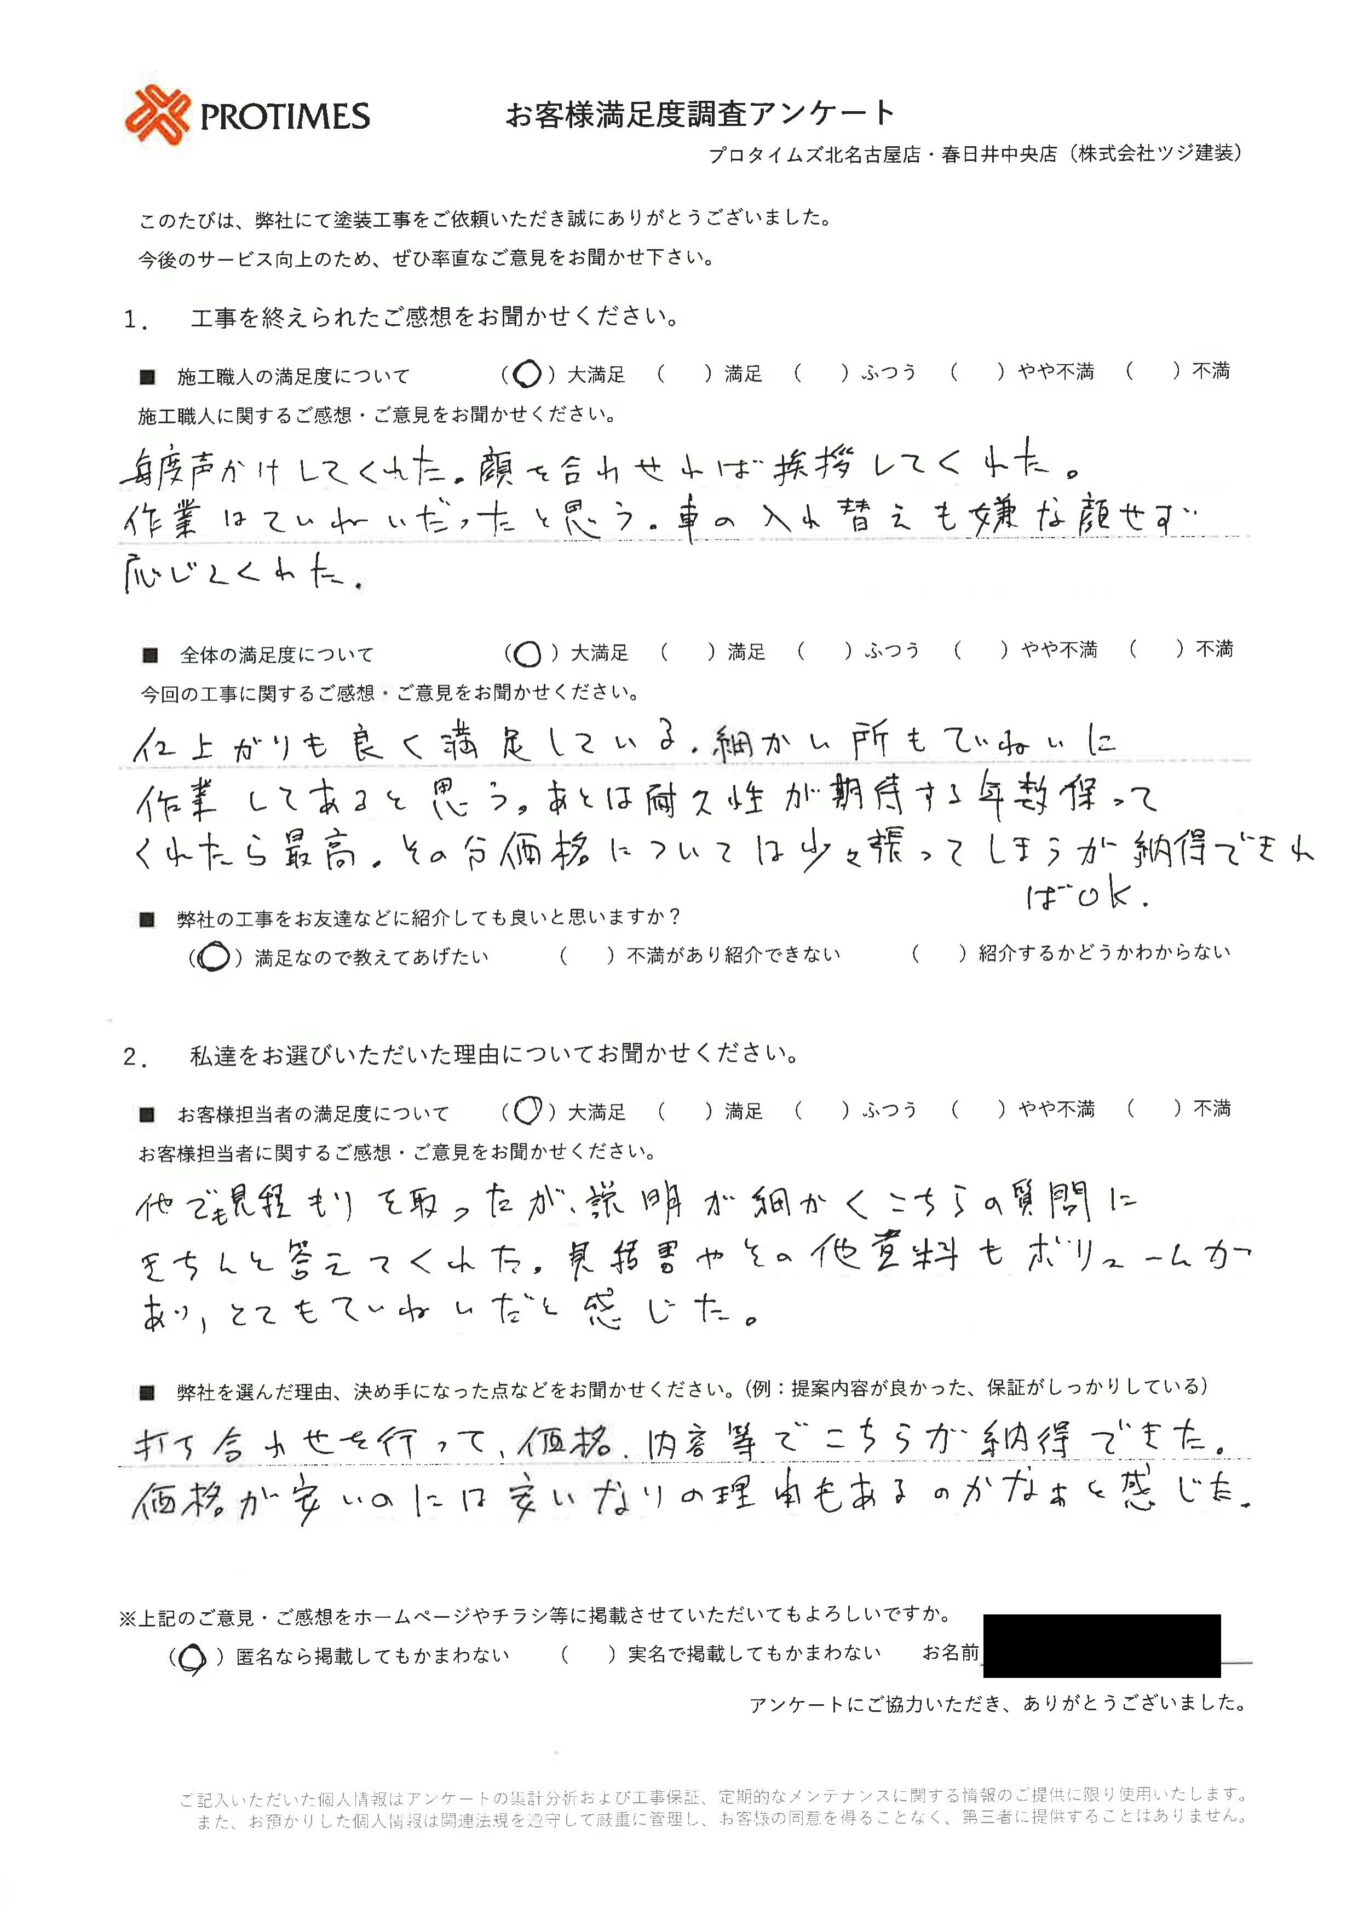 PROTIMES お客様満足度調査アンケート
プロタイムズ北名古屋店・春日井中央店（株式会社ツジ建装）
このたびは、弊社にて塗装工事をご依頼いただき誠にありがとうございました。
今後のサービス向上のため、ぜひ率直なご意見をお聞かせ下さい。
1． 工事を終えられたご感想をお聞かせください。
■ 施工職人の満足度について （○）大満足 （ ）満足 （ ）ふつう （ ）やや不満 （ ）不満
施工職人に関するご感想・ご意見をお聞かせください。
毎度声かけしてくれた。顔を合わせれば挨拶してくれた。
作業はていねいだったと思う。車の入れ替えも嫌な顔せず
応じてくれた。
■ 全体の満足度について （○）大満足 （ ）満足 （ ）ふつう （ ）やや不満 （ ）不満
今回の工事に関するご感想・ご意見をお聞かせください。
仕上がりも良く満足している。細かい所もていねいに
作業してあると思う。あとは耐久性が期待する年数保って
くれたら最高。その分価格については少々張ってしまうが納得できれ
ばOK.
■ 弊社の工事をお友達などに紹介しても良いと思いますか？
（○）満足なので教えてあげたい （ ）不満があり紹介できない （ ）紹介するかどうかわからない
2． 私達をお選びいただいた理由についてお聞かせください。
■ お客様担当者の満足度について （○）大満足 （ ）満足 （ ）ふつう （ ）やや不満 （ ）不満
お客様担当者に関するご感想・ご意見をお聞かせください。
他でも見積もりを取ったが、説明が細かくこちらの質問に
きちんと答えてくれた。見積書やその他資料もボリュームが
あり、とてもていねいだと感じた。
■ 弊社を選んだ理由、決め手になった点などをお聞かせください。（例：提案内容が良かった、保証がしっかりしている）
打ち合わせを行って、価格、内容等でこちらが納得できた。
価格が安いのには安いなりの理由もあるのかなぁと感じた.
※上記のご意見・ご感想をホームページやチラシ等に掲載させていただいてもよろしいですか。
（○）匿名なら掲載してもかまわない （ ）実名で掲載してもかまわない お名前
アンケートにご協力いただき、ありがとうございました。
ご記入いただいた個人情報はアンケートの集計分析および工事保証、定期的なメンテナンスに関する情報のご提供に限り使用いたします。
また、お預かりした個人情報は関連法規を遵守して厳重に管理し、お客様の同意を得ることなく、第三者に提供することはありません。